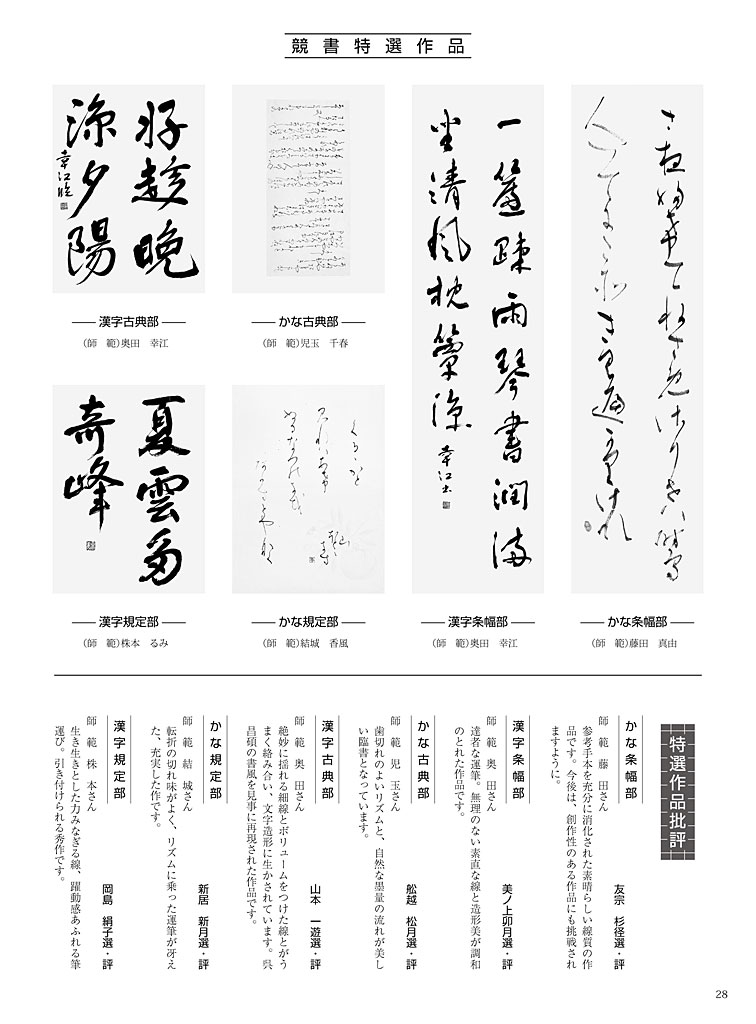 競書特選作品
好趁晩
涼夕陽
幸江臨
漢字古典部
（師　範）奥田　幸江
かな古典部
（師　範）児玉　千春
一簾疎雨琴書潤満
坐清風枕簟涼
幸江书
漢字条幅部
（師　範）奥田　幸江
かな条幅部
（師　範）藤田　真由
夏雲多
奇峰
漢字規定部
（師　範）株本　るみ
かな規定部
（師　範）結城　香風
特選作品批評
かな条幅部
友宗　杉径選・評
師　範　藤　田さん
参考手本を充分に消化された素晴らしい線質の作
品です。今後は、創作性のある作品にも挑戦され
ますように。
漢字条幅部
美ノ上卯月選・評
師　範　奥　田さん
達者な運筆。無理のない素直な線と造形美が調和
のとれた作品です。
かな古典部
舩越　松月選・評
師　範　児　玉さん
歯切れのよいリズムと、自然な墨量の流れが美し
い臨書となっています。
漢字古典部
山本　一遊選・評
師　範　奥　田さん
絶妙に揺れる細線とボリュームをつけた線とがう
まく絡み合い、文字造形に生かされています。呉
昌碩の書風を見事に再現された作品です。
かな規定部
新居　新月選・評
師　範　結　城さん
転折の切れ味がよく、リズムに乗った運筆が冴え
た、充実した作です。
漢字規定部
岡島　絹子選・評
師　範　株　本さん
生き生きとした力みなぎる線、躍動感あふれる筆
運び。引き付けられる秀作です。
28